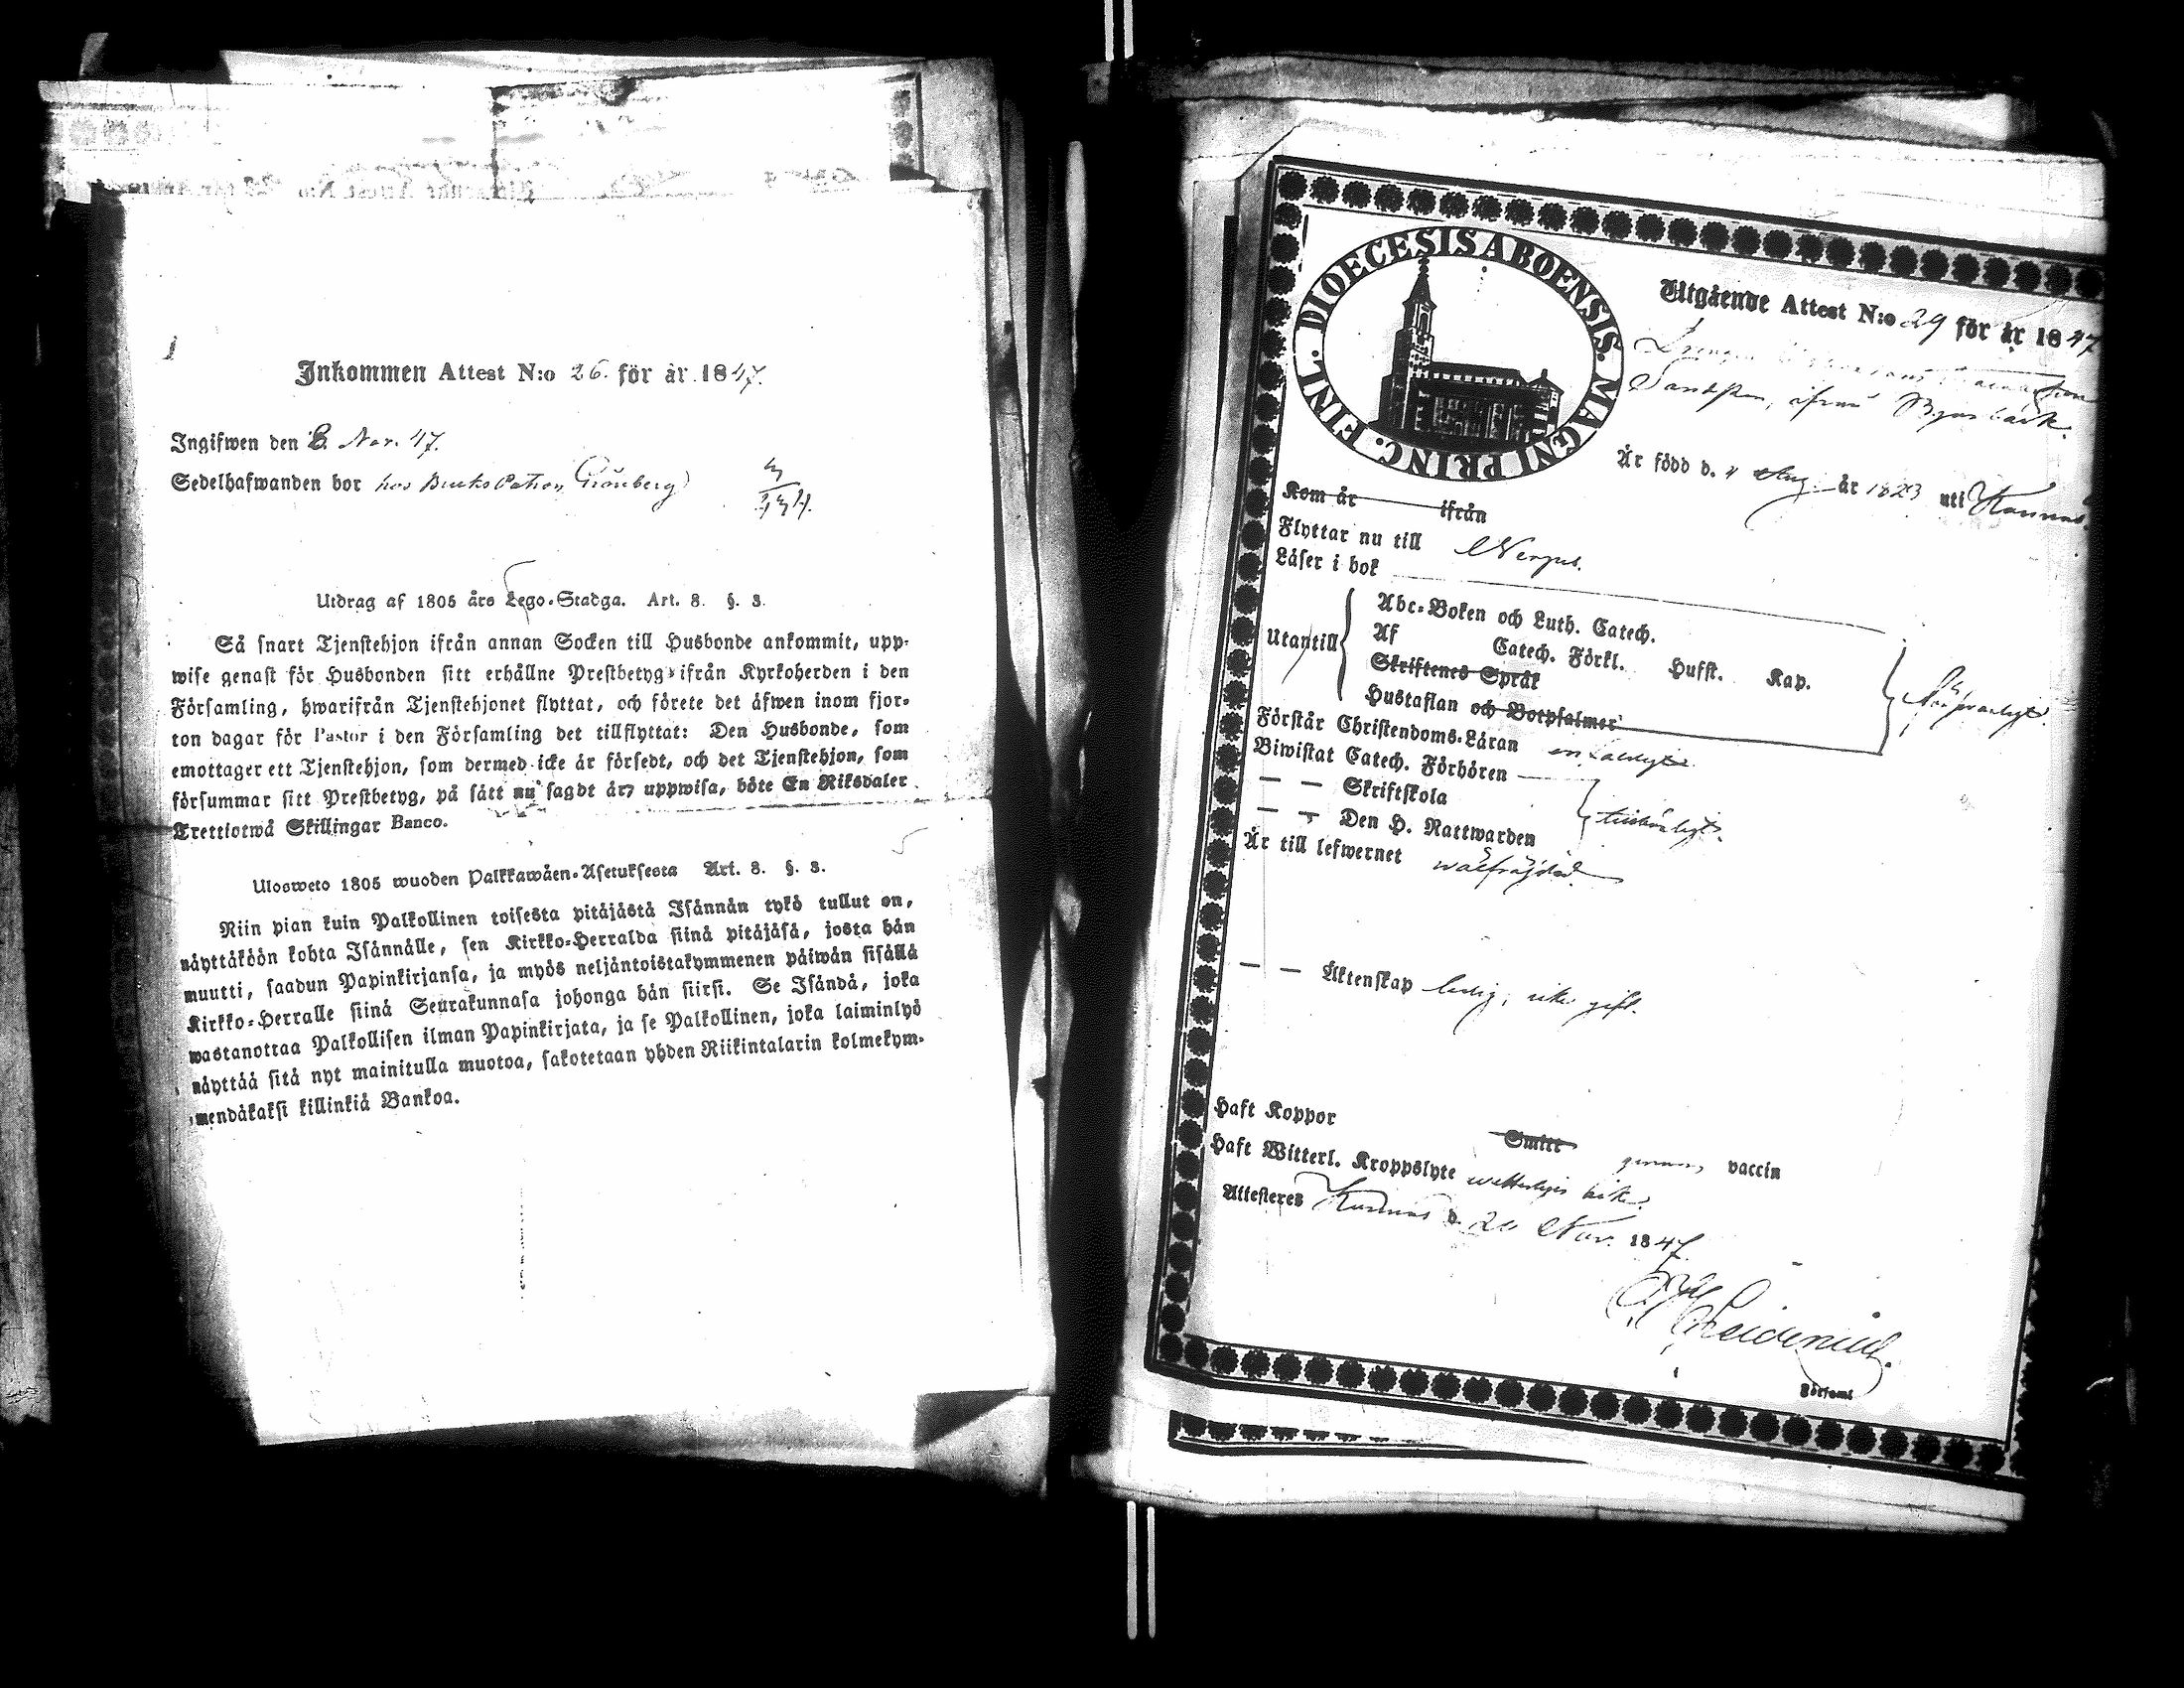 Inkommen Attest N:o 26. för år 1847.
Ingifwen den 8 Nov. 47.
Sedelhafwanden bor hos Bruks Patron Grönberg
Utdrag af 1805 års Lego-Stadga. Art. 8. §. 3.
Så snart Tjenstehjon ifrån annan Socken till Husbonde ankommit, upp-
wise genast för Husbonden sitt erhållne Prestbetyg ifrån Kyrkoherden i den
Församling, hwarifrån Tjenstehjonet flyttat, och förete det äfwen inom fjor-
ton dagar för Pastor i den Församling det tillflyttat: Den Husbonde, som
emottager ett Tjenstehjon, som dermed icke är försedt, och det Tjenstehjon, som
försummar sitt Prestbetyg, på sätt nu sagdt är, uppwisa, böte En Riksdaler
Trettiotwå Skillingar Banco.
Ulosweto 1805 wuoden Palkkawäen-Asetuksesta Art. 8. §. 3.
Niin pian kuin Palkollinen toisesta pitäjästä Isännän tykö tullut on,
näyttäköön kohta Isännälle, sen Kirkko-Herralda siinä pitäjäsä, josta hän
muutti, saadun Papinkirjansa, ja myös neljäntoistakymmenen päiwän sisällä
Kirkko-Herralle siinä Seurakunnasa johonga hän siirsi. Se Isändä, joka
wastanottaa Palkollisen ilman Papinkirjata, ja se Palkollinen, joka laiminlyö
näyttää sitä nyt mainitulla muotoa, sakotetaan yhden Riikintalarin kolmekym-
mendäkaksi killinkiä Bankoa.
DIOECESIS ABOENSIS. MAGNI PRINC. FINL.
Utgående Attest N:o 29 för år 1847
ifrån
Är född d. 4 Aug. år 1823 uti
Kom år ifrån
Flyttar nu till
Läser i bok
Utantill
Abc-Boken och Luth. Catech.
Af Catech. Förkl. Husst. Kap.
Skriftenes Språk
Hustaflan och Botpsalmer
Förstår Christendoms-Läran enfaldigt
Biwistat Catech. Förhören
— — Skriftskola
— — Den H. Nattwarden
Är till lefwernet wälfräjdad
— — Äktenskap ledig, icke gift.
Haft Koppor Smitt genom vaccin
Haft Witterl. Kroppslyte witterligen icke.
Attesteras d. Nov. 1847
Församl